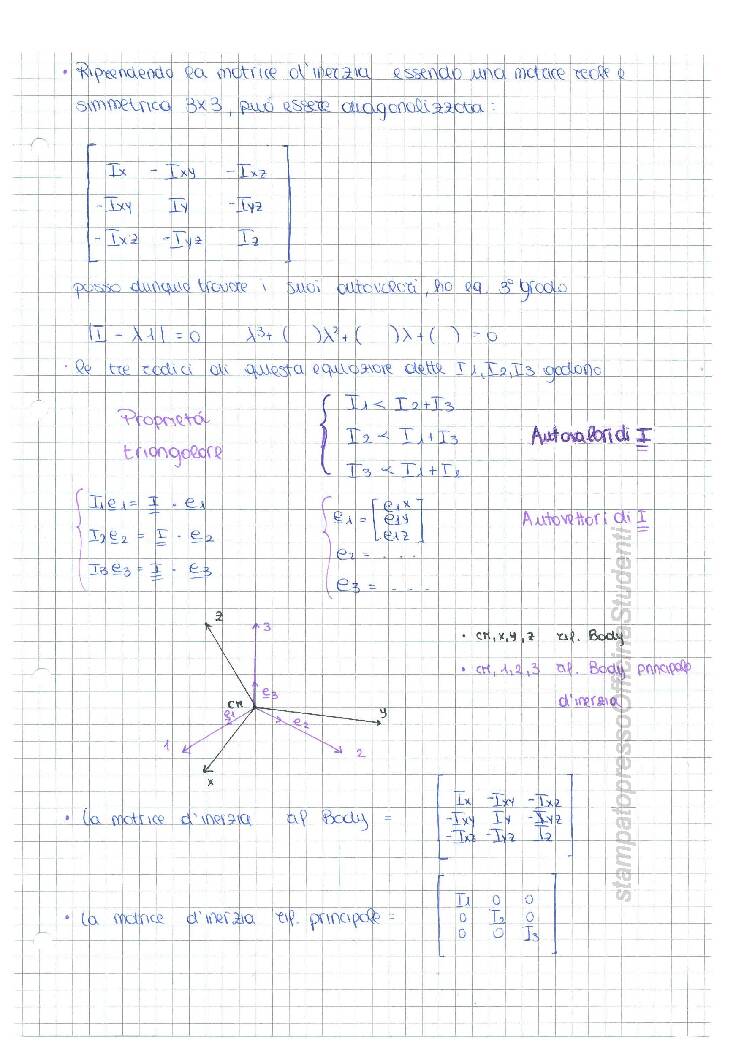 • Riprendendo la matrice d'inerzia essendo una matrice reale e
simmetrica 3x3, può essere diagonalizzata:
Ix - Ixy - Ixz
- Ixy Iy - Iyz
- Ixz - Iyz Iz
posso dunque trovare i suoi autovalori, ho eq. 3° grado
|I - λ1| = 0 λ³+ ( )λ²+ ( )λ + ( ) = 0
• le tre radici di questa equazione dette I1, I2, I3 godono
Proprietà
triangolare
I1 < I2+I3
I2 < I1+I3
I3 < I1+I2
Autovalori di I
I1e1 = I · e1
I2e2 = I · e2
I3e3 = I · e3
e1 = [e1x
e1y
e1z]
e2 = - - - -
e3 = - - - -
Autovettori di I
z
3
• CM, x, y, z rif. Body
• CM, 1, 2, 3 rif. Body principale
d'inerzia
CM
e3
e1
e2
y
1
2
x
• La matrice d'inerzia rif Body =
Ix -Ixy -Ixz
-Ixy Iy -Iyz
-Ixz -Iyz Iz
• La matrice d'inerzia rif. principale =
I1 0 0
0 I2 0
0 0 I3
stampatopressoOfficineStudenti